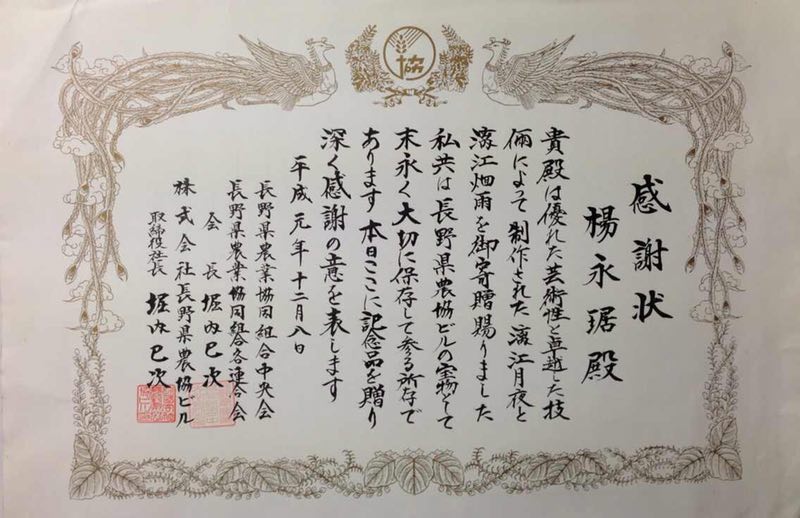 協
感謝状
楊永琚殿
貴殿は優れた芸術性と卓越した技
倆によって制作された漓江月夜と
漓江烟雨を御寄贈賜りました
私共は長野県農協ビルの宝物として
末永く大切に保存して参る所存で
あります本日ここに記念品を贈り
深く感謝の意を表します
平成元年十二月八日
長野県農業協同組合中央会
長野県農業協同組合各連合会
会長堀内巳次
株式会社長野県農協ビル
取締役社長堀内巳次